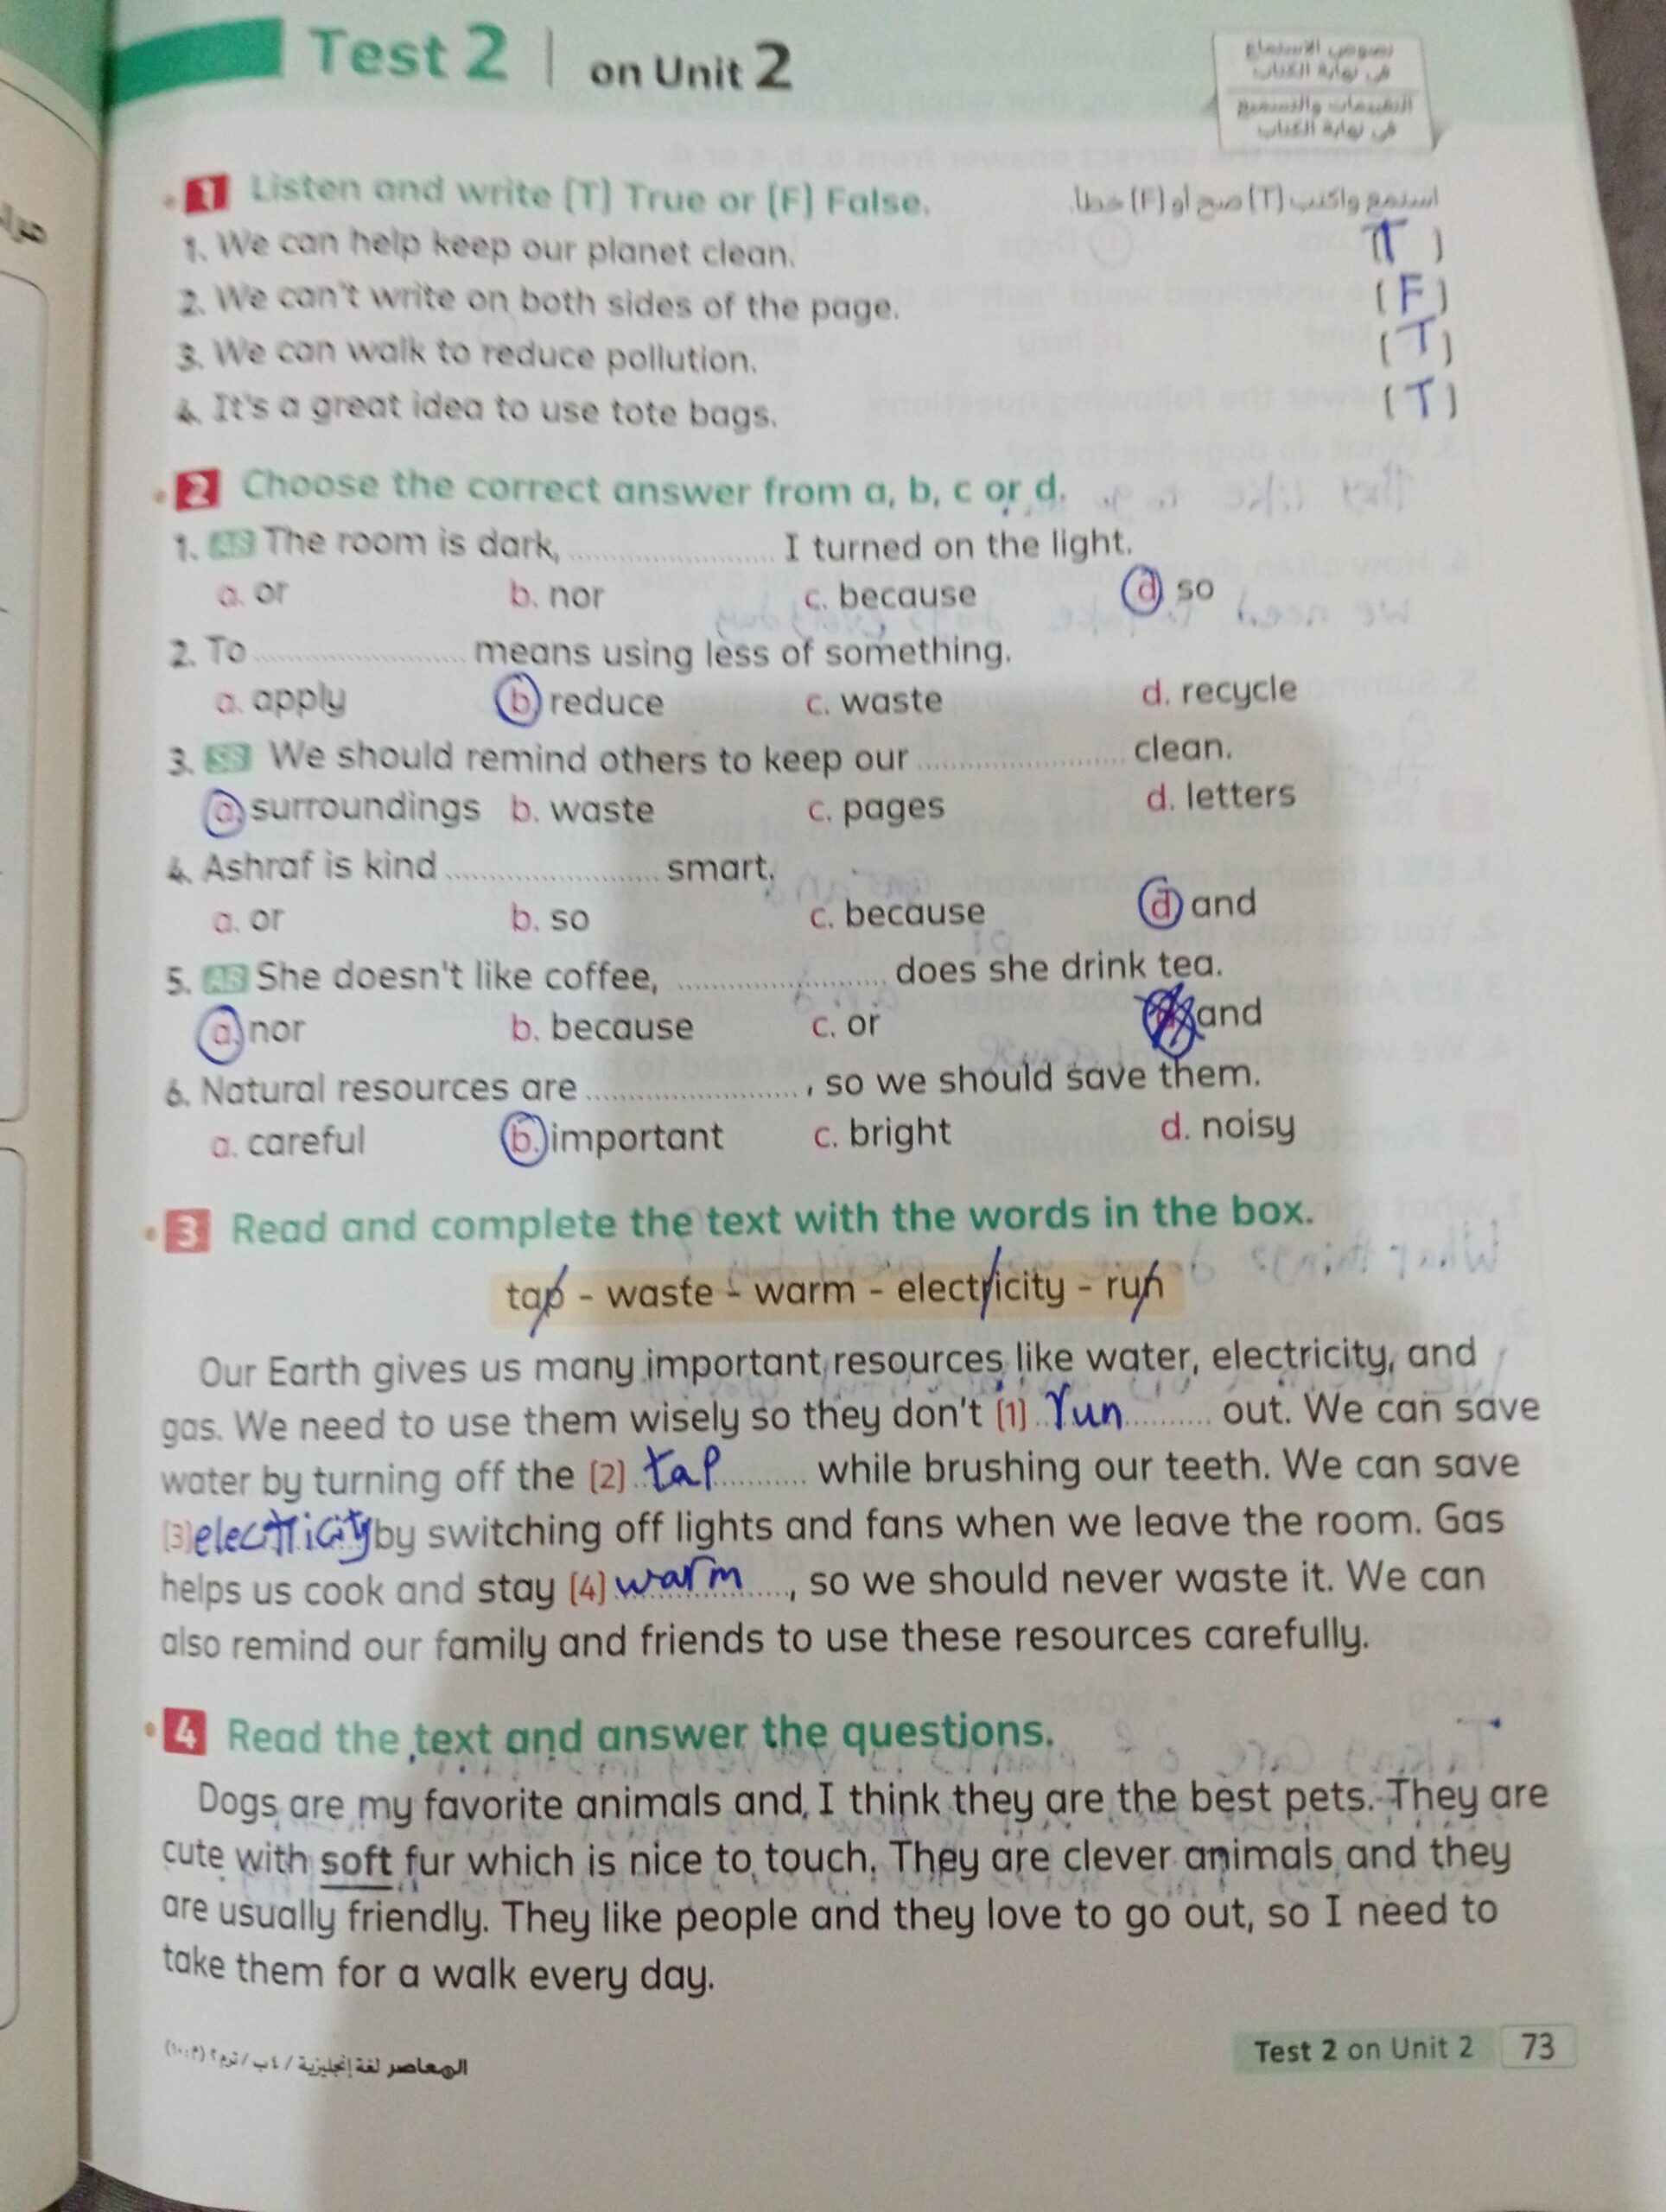 Test 2 | on Unit 2
نصوص الاستماع
في نهاية الكتاب
التقييمات والتسميع
في نهاية الكتاب
1 Listen and write (T) True or (F) False. استمع واكتب (T) صح أو (F) خطأ.
1. We can help keep our planet clean. (T)
2. We can't write on both sides of the page. (F)
3. We can walk to reduce pollution. (T)
4. It's a great idea to use tote bags. (T)
2 Choose the correct answer from a, b, c or d.
1. AB The room is dark, .................... I turned on the light.
a. or b. nor c. because d. so
2. To .................... means using less of something.
a. apply b. reduce c. waste d. recycle
3. SB We should remind others to keep our .................... clean.
a. surroundings b. waste c. pages d. letters
4. Ashraf is kind .................... smart.
a. or b. so c. because d. and
5. AB She doesn't like coffee, .................... does she drink tea.
a. nor b. because c. or d. and
6. Natural resources are ...................., so we should save them.
a. careful b. important c. bright d. noisy
3 Read and complete the text with the words in the box.
tap - waste - warm - electricity - run
Our Earth gives us many important resources like water, electricity, and
gas. We need to use them wisely so they don't (1) run out. We can save
water by turning off the (2) tap while brushing our teeth. We can save
(3) electricity by switching off lights and fans when we leave the room. Gas
helps us cook and stay (4) warm, so we should never waste it. We can
also remind our family and friends to use these resources carefully.
4 Read the text and answer the questions.
Dogs are my favorite animals and I think they are the best pets. They are
cute with soft fur which is nice to touch. They are clever animals and they
are usually friendly. They like people and they love to go out, so I need to
take them for a walk every day.
المعاصر لغة إنجليزية / ٤ب / ترم ٢ (م: ١٠)
Test 2 on Unit 2 73